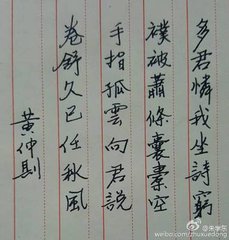 多君憐我坐詩窮
襆被蕭條囊橐空
手指孤雲向君說
卷舒久已任秋風
黃仲則
@朱学东
weibo.com/zhuxuedong